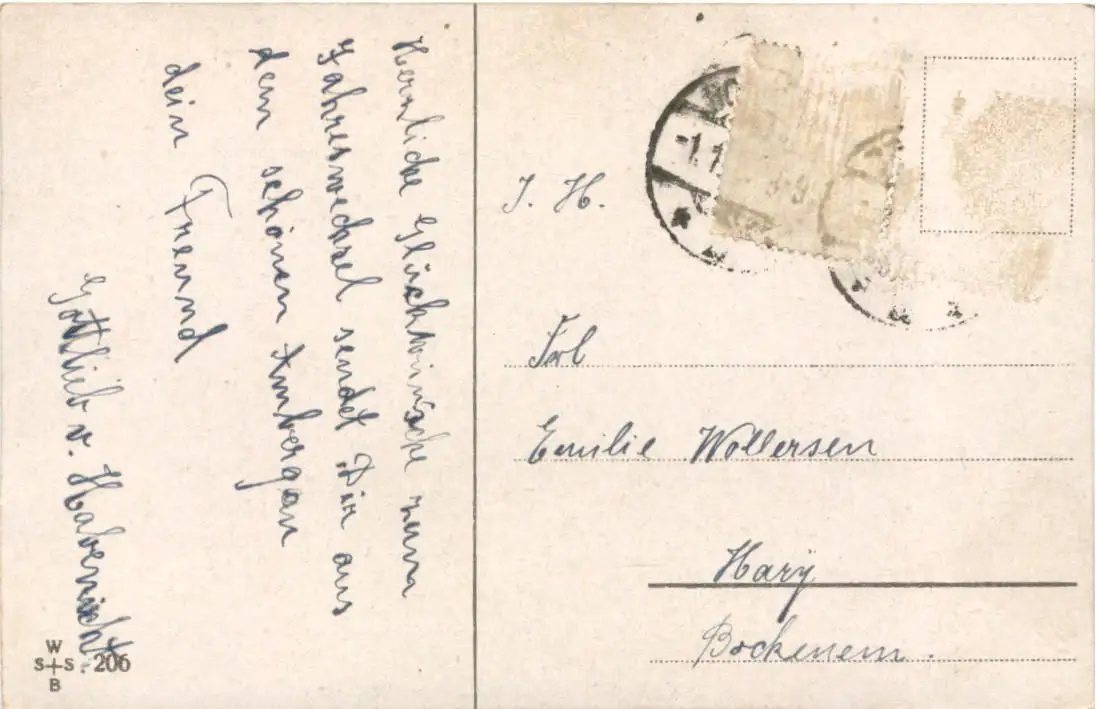 Herzliche Glückwünsche zum
Jahreswechsel sendet Dir aus
dem schönen Ambergau
dein Freund
Gottlieb v. Habenicht
J. H.
Frl
Emilie Wollersen
Hary
Bockenem.
W
S+S
B
206